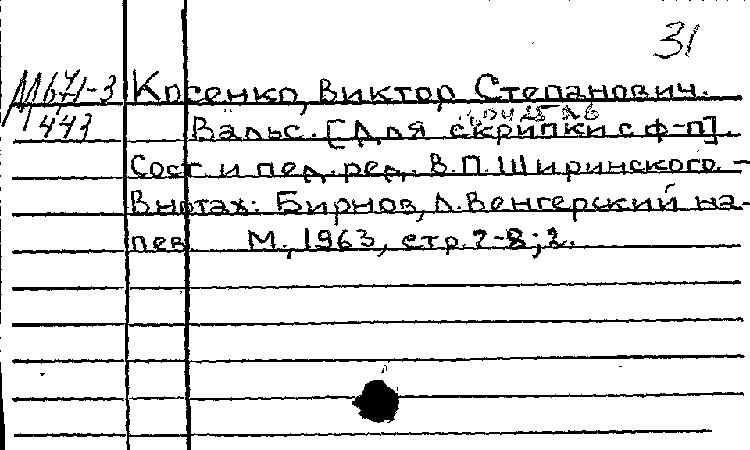 31
М671-3 Косенко, Виктор Степанович.
443 Вальс. [Для скрипки с ф-п].
Сост. и пед. ред. В.П. Ширинского. –
В нотах: Бирнов, Л. Венгерский на-
пев. М., 1963, стр. 7-8; 2.